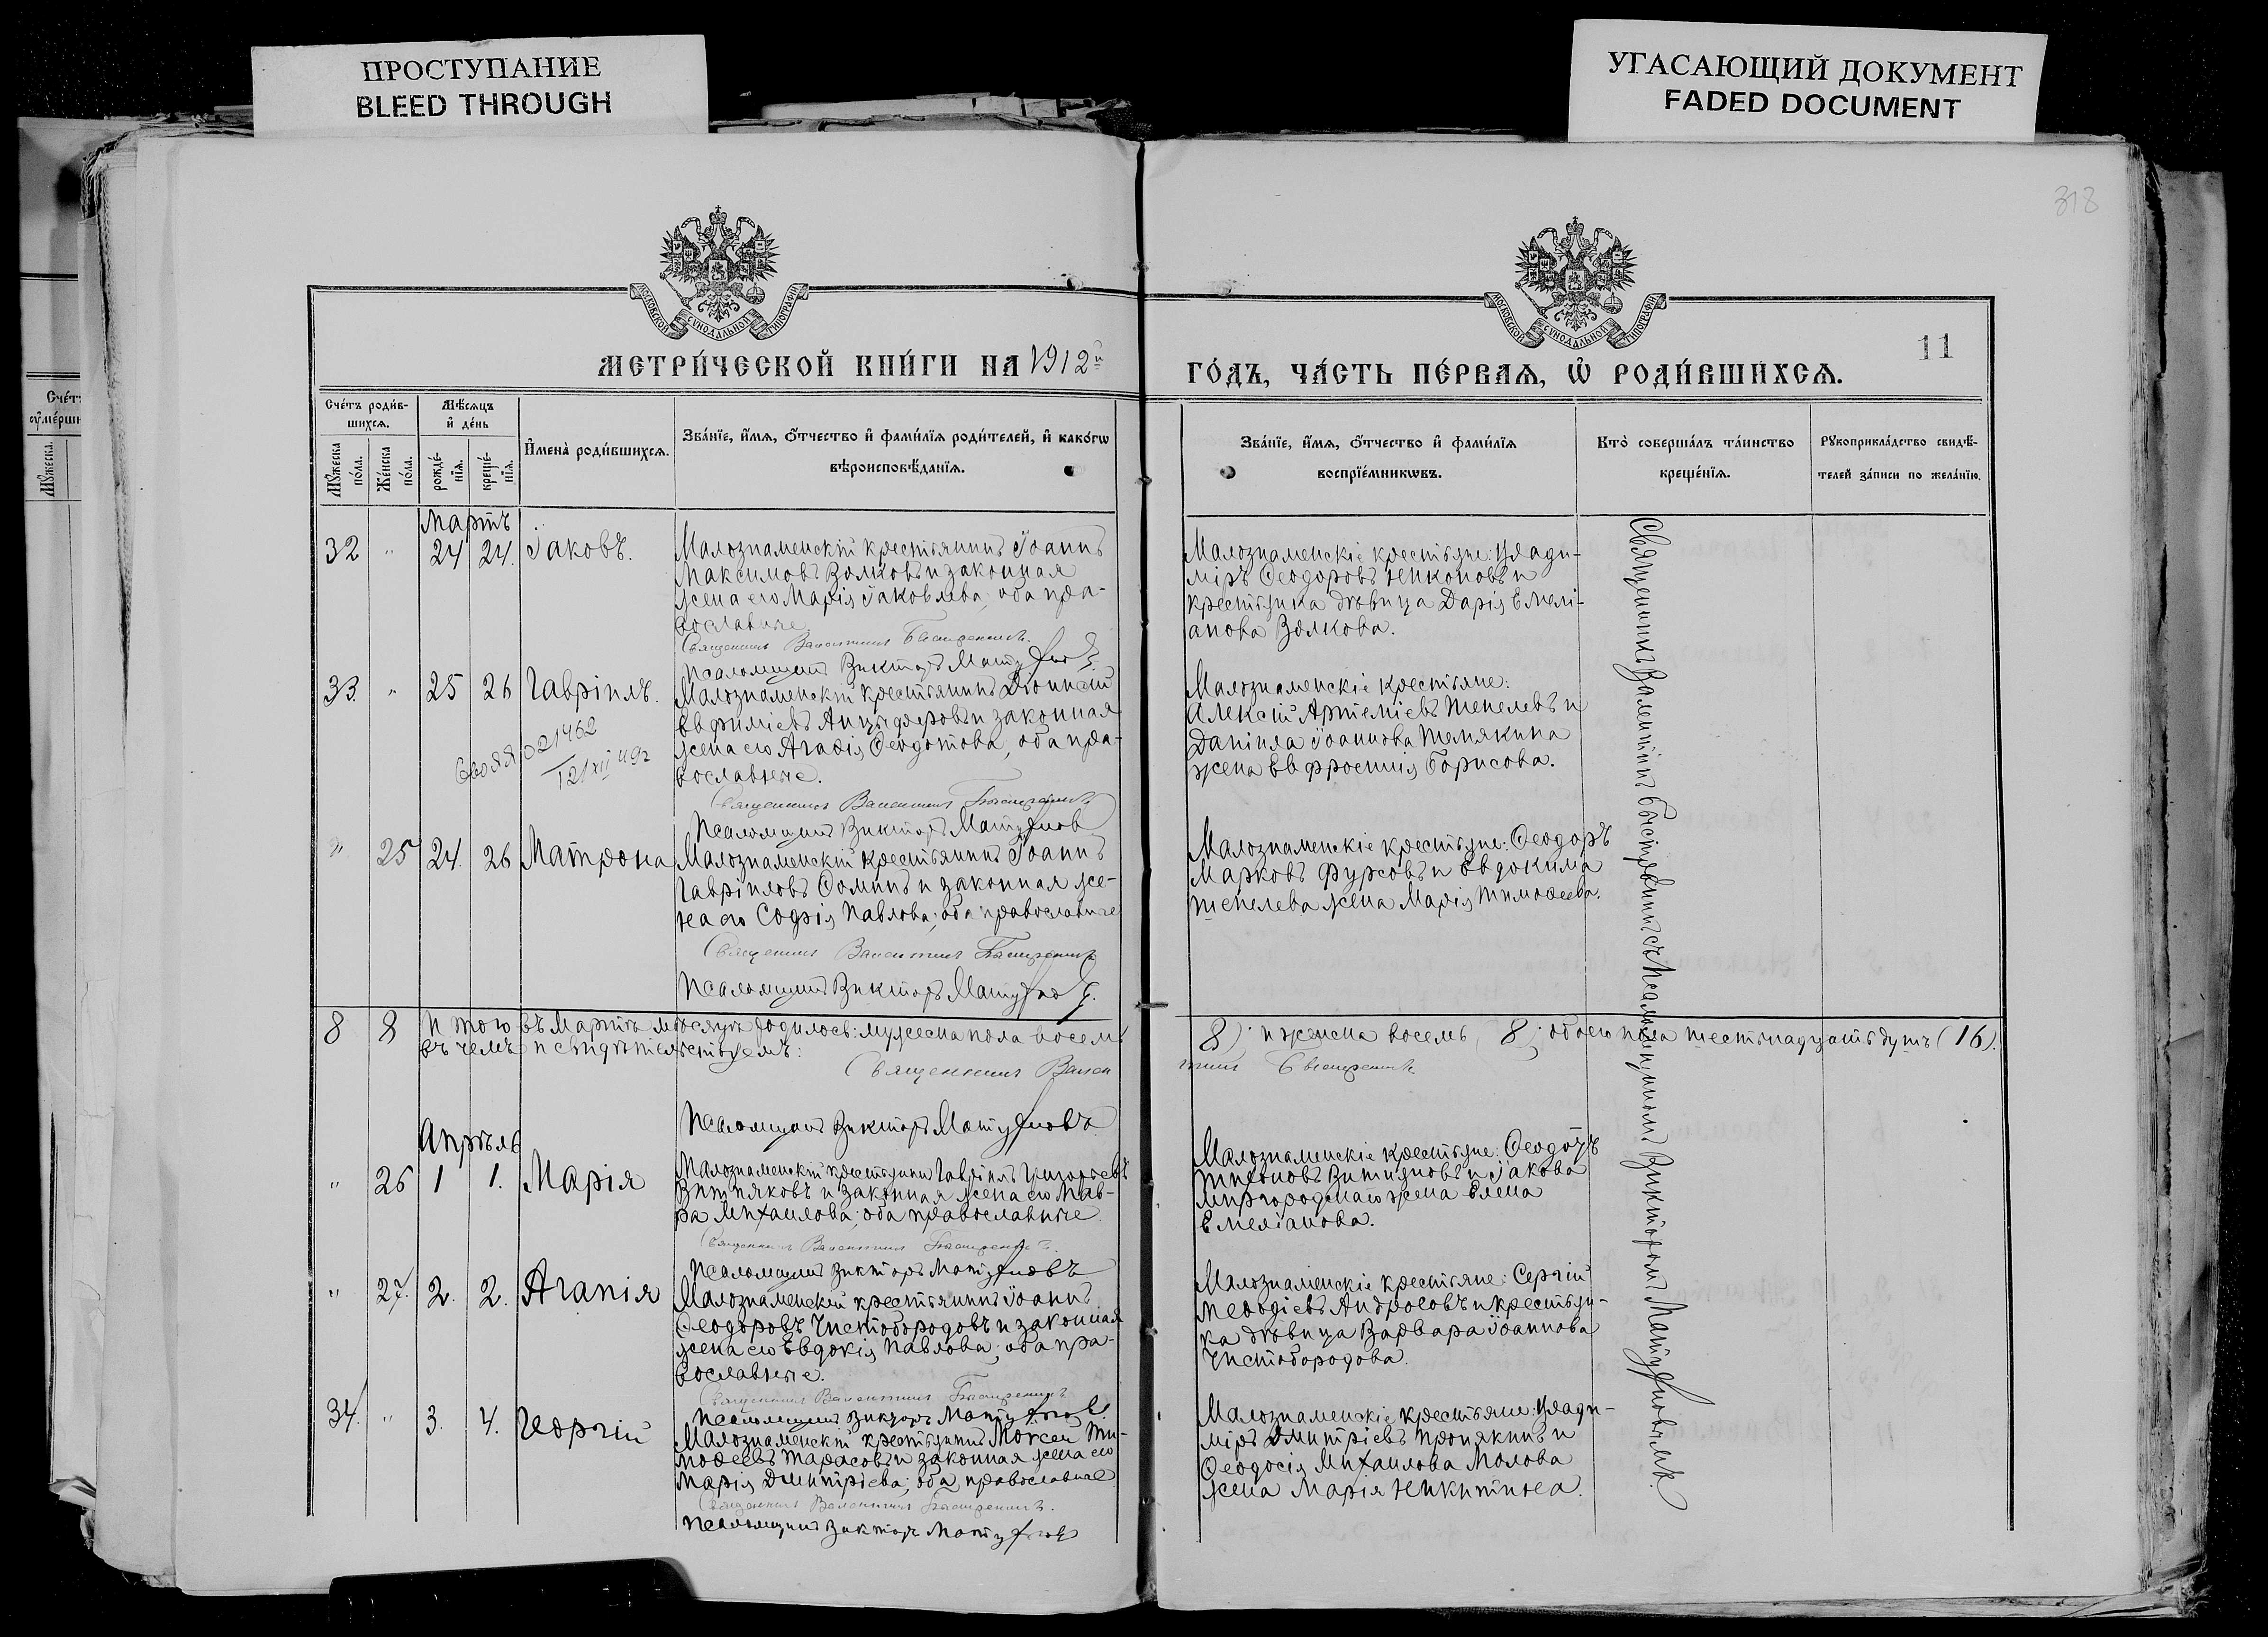 ПРОСТУПАНИЕ
BLEED THROUGH
УГАСАЮЩИЙ ДОКУМЕНТ
FADED DOCUMENT
318
МОСКОВСКОЙ СѴНОДАЛЬНОЙ ТИПОГРАФІИ
МОСКОВСКОЙ СѴНОДАЛЬНОЙ ТИПОГРАФІИ
11
МЕТРИ́ЧЕСКОЙ КНИ́ГИ НА 1912й
ГО́ДЪ, ЧА́СТЬ ПЕ́РВАѦ, Ѡ҆ РОДИ́ВШИХСѦ.
Сче́тъ роди́в-
шихсѧ.
Мꙋ́жеска по́ла.
Же́нска по́ла.
Мѣ́сѧцъ
и҆ де́нь
рожде́-
нїѧ.
креще́-
нїѧ.
И҆мена̀ роди́вшихсѧ.
Зва́нїе, и҆́мѧ, ѻ҆́тчество и҆ фами́лїѧ роди́телей, и҆ како́гѡ
вѣроисповѣ́данїѧ.
Зва́нїе, и҆́мѧ, ѻ҆́тчество и҆ фами́лїѧ
воспрїе́мникѡвъ.
Кто̀ соверша́лъ та́инство
креще́нїѧ.
Рꙋкоприкла́дство свидѣ́-
телей за́писи по жела́нїю.
Мартъ
32 " 24 24. Іаковъ.
Малознаменскій крестьянинъ Іоаннъ
Максимовъ Волковъ и законная
жена его Марія Іаковлева; оба пра-
вославные.
Священникъ Валентинъ
Псаломщикъ Викторъ
Малознаменскіе крестьяне: Влади-
міръ Ѳеодоровъ Никоновъ и
крестьянка дѣвица Дарія Емелі-
анова Волкова.
33. " 25 26 Гавріилъ.
021462
Малознаменскій крестьянинъ Діонисій
Евфиміевъ и законная
жена его Агаѳія Ѳеодотова, оба пра-
вославные.
Священникъ Валентинъ
Псаломщикъ Викторъ
Малознаменскіе крестьяне:
Алексій Артеміевъ Шепелевъ и
Даніила Іоаннова Шемякина
жена Евфросинія Борисова.
" 25 24. 26 Матрона
Малознаменскій крестьянинъ Іоаннъ
Гавріиловъ Ѳоминъ и законная же-
на его Софія Павлова; оба православные
Священникъ Валентинъ
Псаломщикъ Викторъ
Малознаменскіе крестьяне: Ѳеодоръ
Марковъ Фурсовъ и Евдокима
Шепелева жена Марія Тимоѳеева.
8 8 Итого въ Мартѣ мѣсяцѣ родилось: мужеска пола восемь
(8) и женска восемь (8); обоего пола шестнадцать душъ (16).
въ чемъ и свидѣтельствуемъ:
Священникъ Вален
тинъ
Псаломщикъ Викторъ
Апрѣль
" 26 1 1. Марія
Малознаменскій крестьянинъ Гавріилъ Григорьевъ
и законная жена его Мав-
ра Михаилова; оба православные
Священникъ Валентинъ
Псаломщикъ Викторъ
Малознаменскіе крестьяне: Ѳеодоръ
и Іакова
Миргородскаго жена Елена
Емеліанова.
" 27. 2. 2. Агапія
Малознаменскій крестьянинъ Іоаннъ
Ѳеодоровъ Чистобородовъ и законная
жена его Евдокія Павлова; оба пра-
вославные.
Священникъ Валентинъ
Псаломщикъ Викторъ
Малознаменскіе крестьяне: Сергій
Меѳодіевъ Андросовъ и крестьян-
ка дѣвица Варвара Іоаннова
Чистобородова.
34. " 3. 4. Георгій
Малознаменскій крестьянинъ Моисей Ти-
моѳеевъ Тарасовъ и законная жена его
Марія Димитріева; оба православные
Священникъ Валентинъ
Псаломщикъ Викторъ
Малознаменскіе крестьяне: Влади-
міръ Димитріевъ Пронякинъ и
Ѳеодосія Михаилова
жена Марія Никитина.
Священникъ Валентинъ съ Псаломщикомъ Викторомъ